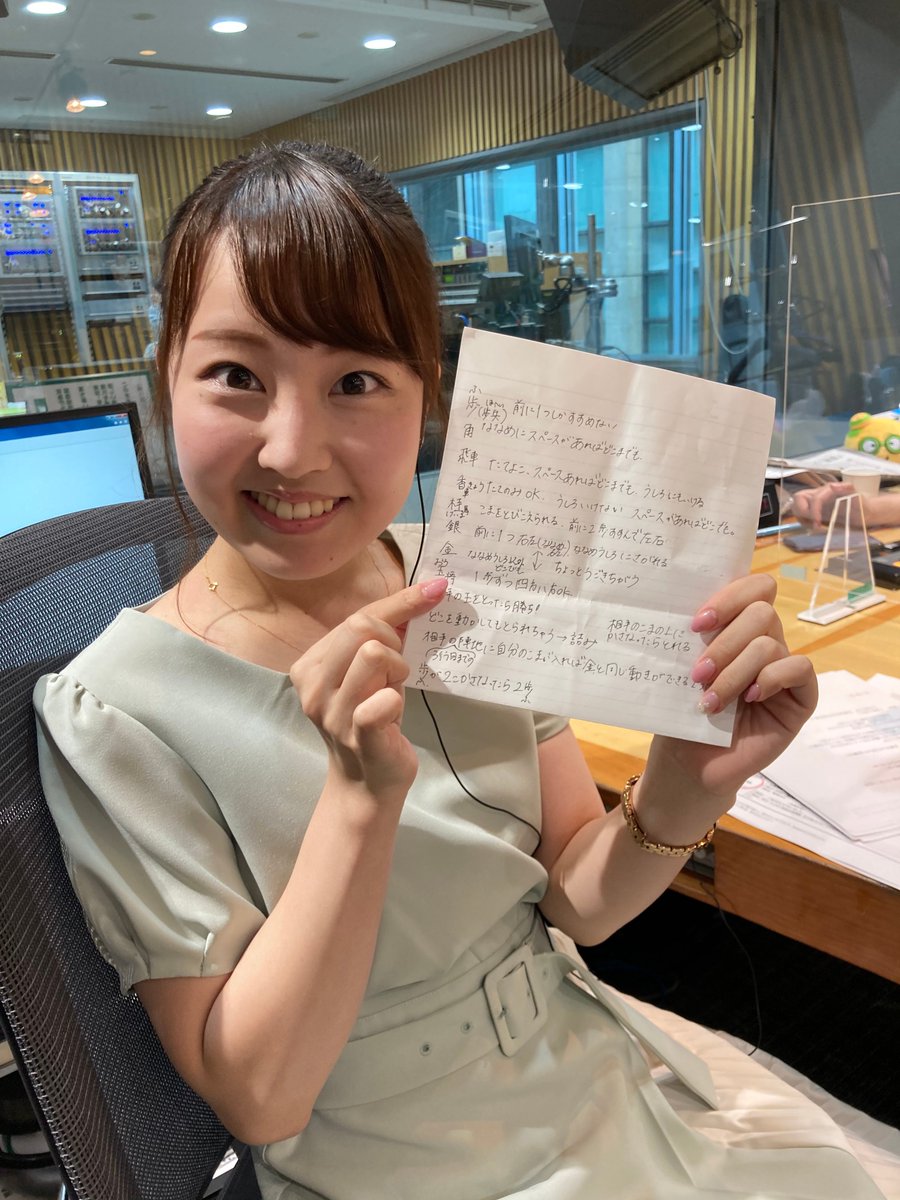 ふ
歩(歩兵) ほへい 前に1つしかすすめない
角 ななめにスペースがあればどこまでも
飛車 たてよこ、スペースあればどこまでも、うしろにもいける
香車 きょう たてのみOK、うしろいけない スペースがあればどこでも。
桂馬 けいま こまをとびこえられる、前に2歩すすんで左右
銀 前に1つ 右左(ななめ) ななめうしろにさがれる
金 ななめうしろ以外どこでも ↑↓ ちょっとうごきちがう
1歩ずつ OK
手の玉をとったら勝ち!
相手のこまの上にかさなったらとれる
どこを動かしてもとられちゃう→詰み
相手の陣地に自分のこまが入れば金と同じ動きができる
3行目まで
歩が2こかさなったら2歩
ふ ふ